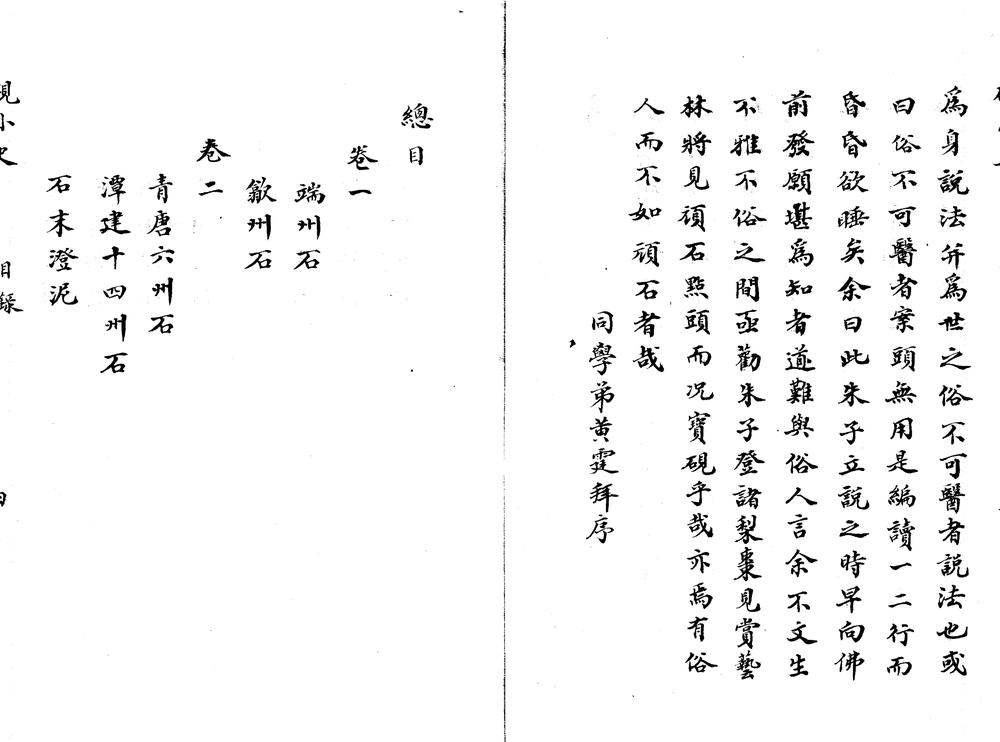 爲身說法并爲世之俗不可醫者說法也或
曰俗不可醫者案頭無用是編讀一二行而
昏昏欲睡矣余曰此朱子立說之時早向佛
前發願堪爲知者道難與俗人言余不文生
不雅不俗之間亟勸朱子登諸梨棗見賞藝
林將見頑石點頭而况寶硯乎哉亦焉有俗
人而不如頑石者哉
同學弟黄霆拜序
總目
卷一
端州石
歙州石
卷二
青唐六州石
潭建十四州石
石末澄泥
硯小史 目錄